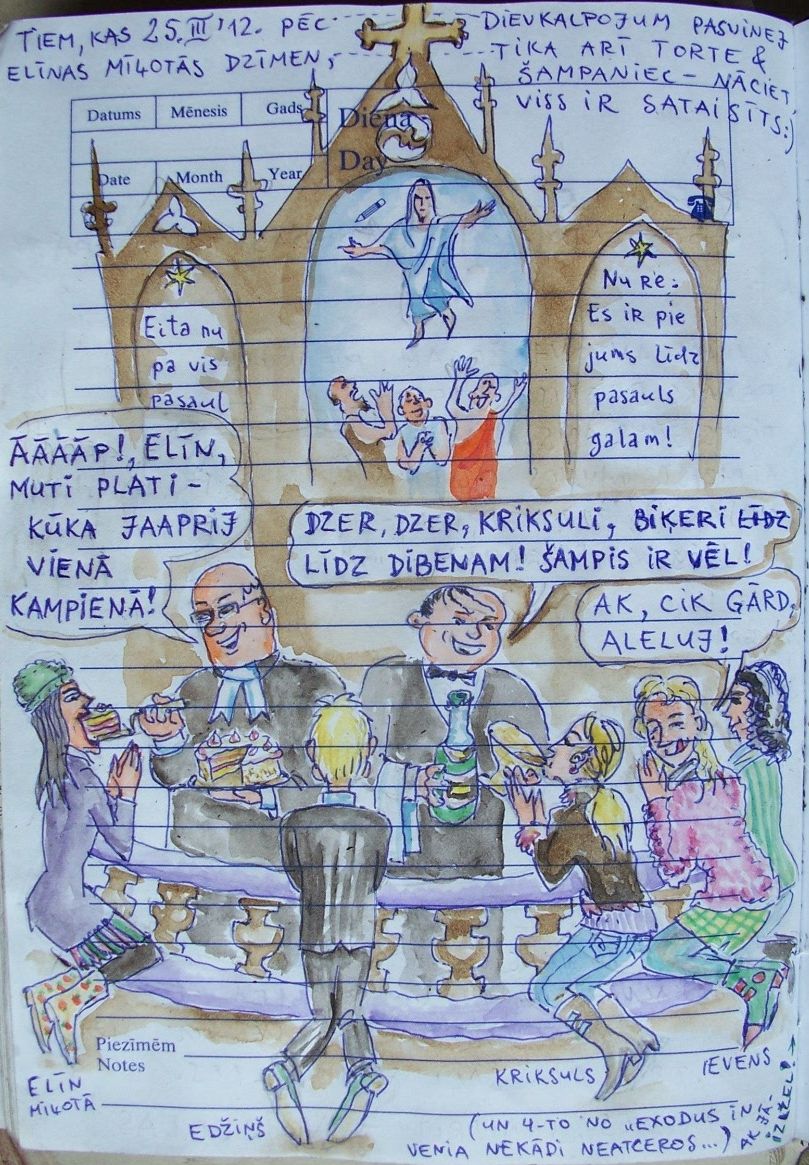 TIEM, KAS 25.III '12. PĒC
DIEVKALPOJUM PASVINEJ
ELĪNAS MĪĻOTĀS DZĪMEN,
TIKA ARĪ TORTE &
ŠAMPANIEC - NĀCIET,
VISS IR SATAISĪTS:)
Datums Mēnesis Gads Diena
Date Month Year Day
Eita nu
pa vis
pasaul
Nu re:
Es iR pie
jums līdz
pasauls
galam!
ĀĀĀĀP!, ELĪN,
MUTI PLATI -
KŪKA JAAPRIJ
VIENĀ
KAMPIENĀ!
DZER, DZER, KRIKSULI, BIĶERI LĪDZ
LĪDZ DIBENAM! ŠAMPIS IR VĒL!
AK, CIK GĀRD.
ALELUJ!
Piezīmēm
Notes
ELĪN
MĪĻOTĀ
EDŽIŅŠ
KRIKSULS
IEVENS
(UN 4-TO NO „EXODUS IN
VENIA NEKĀDI NEATCEROS...)